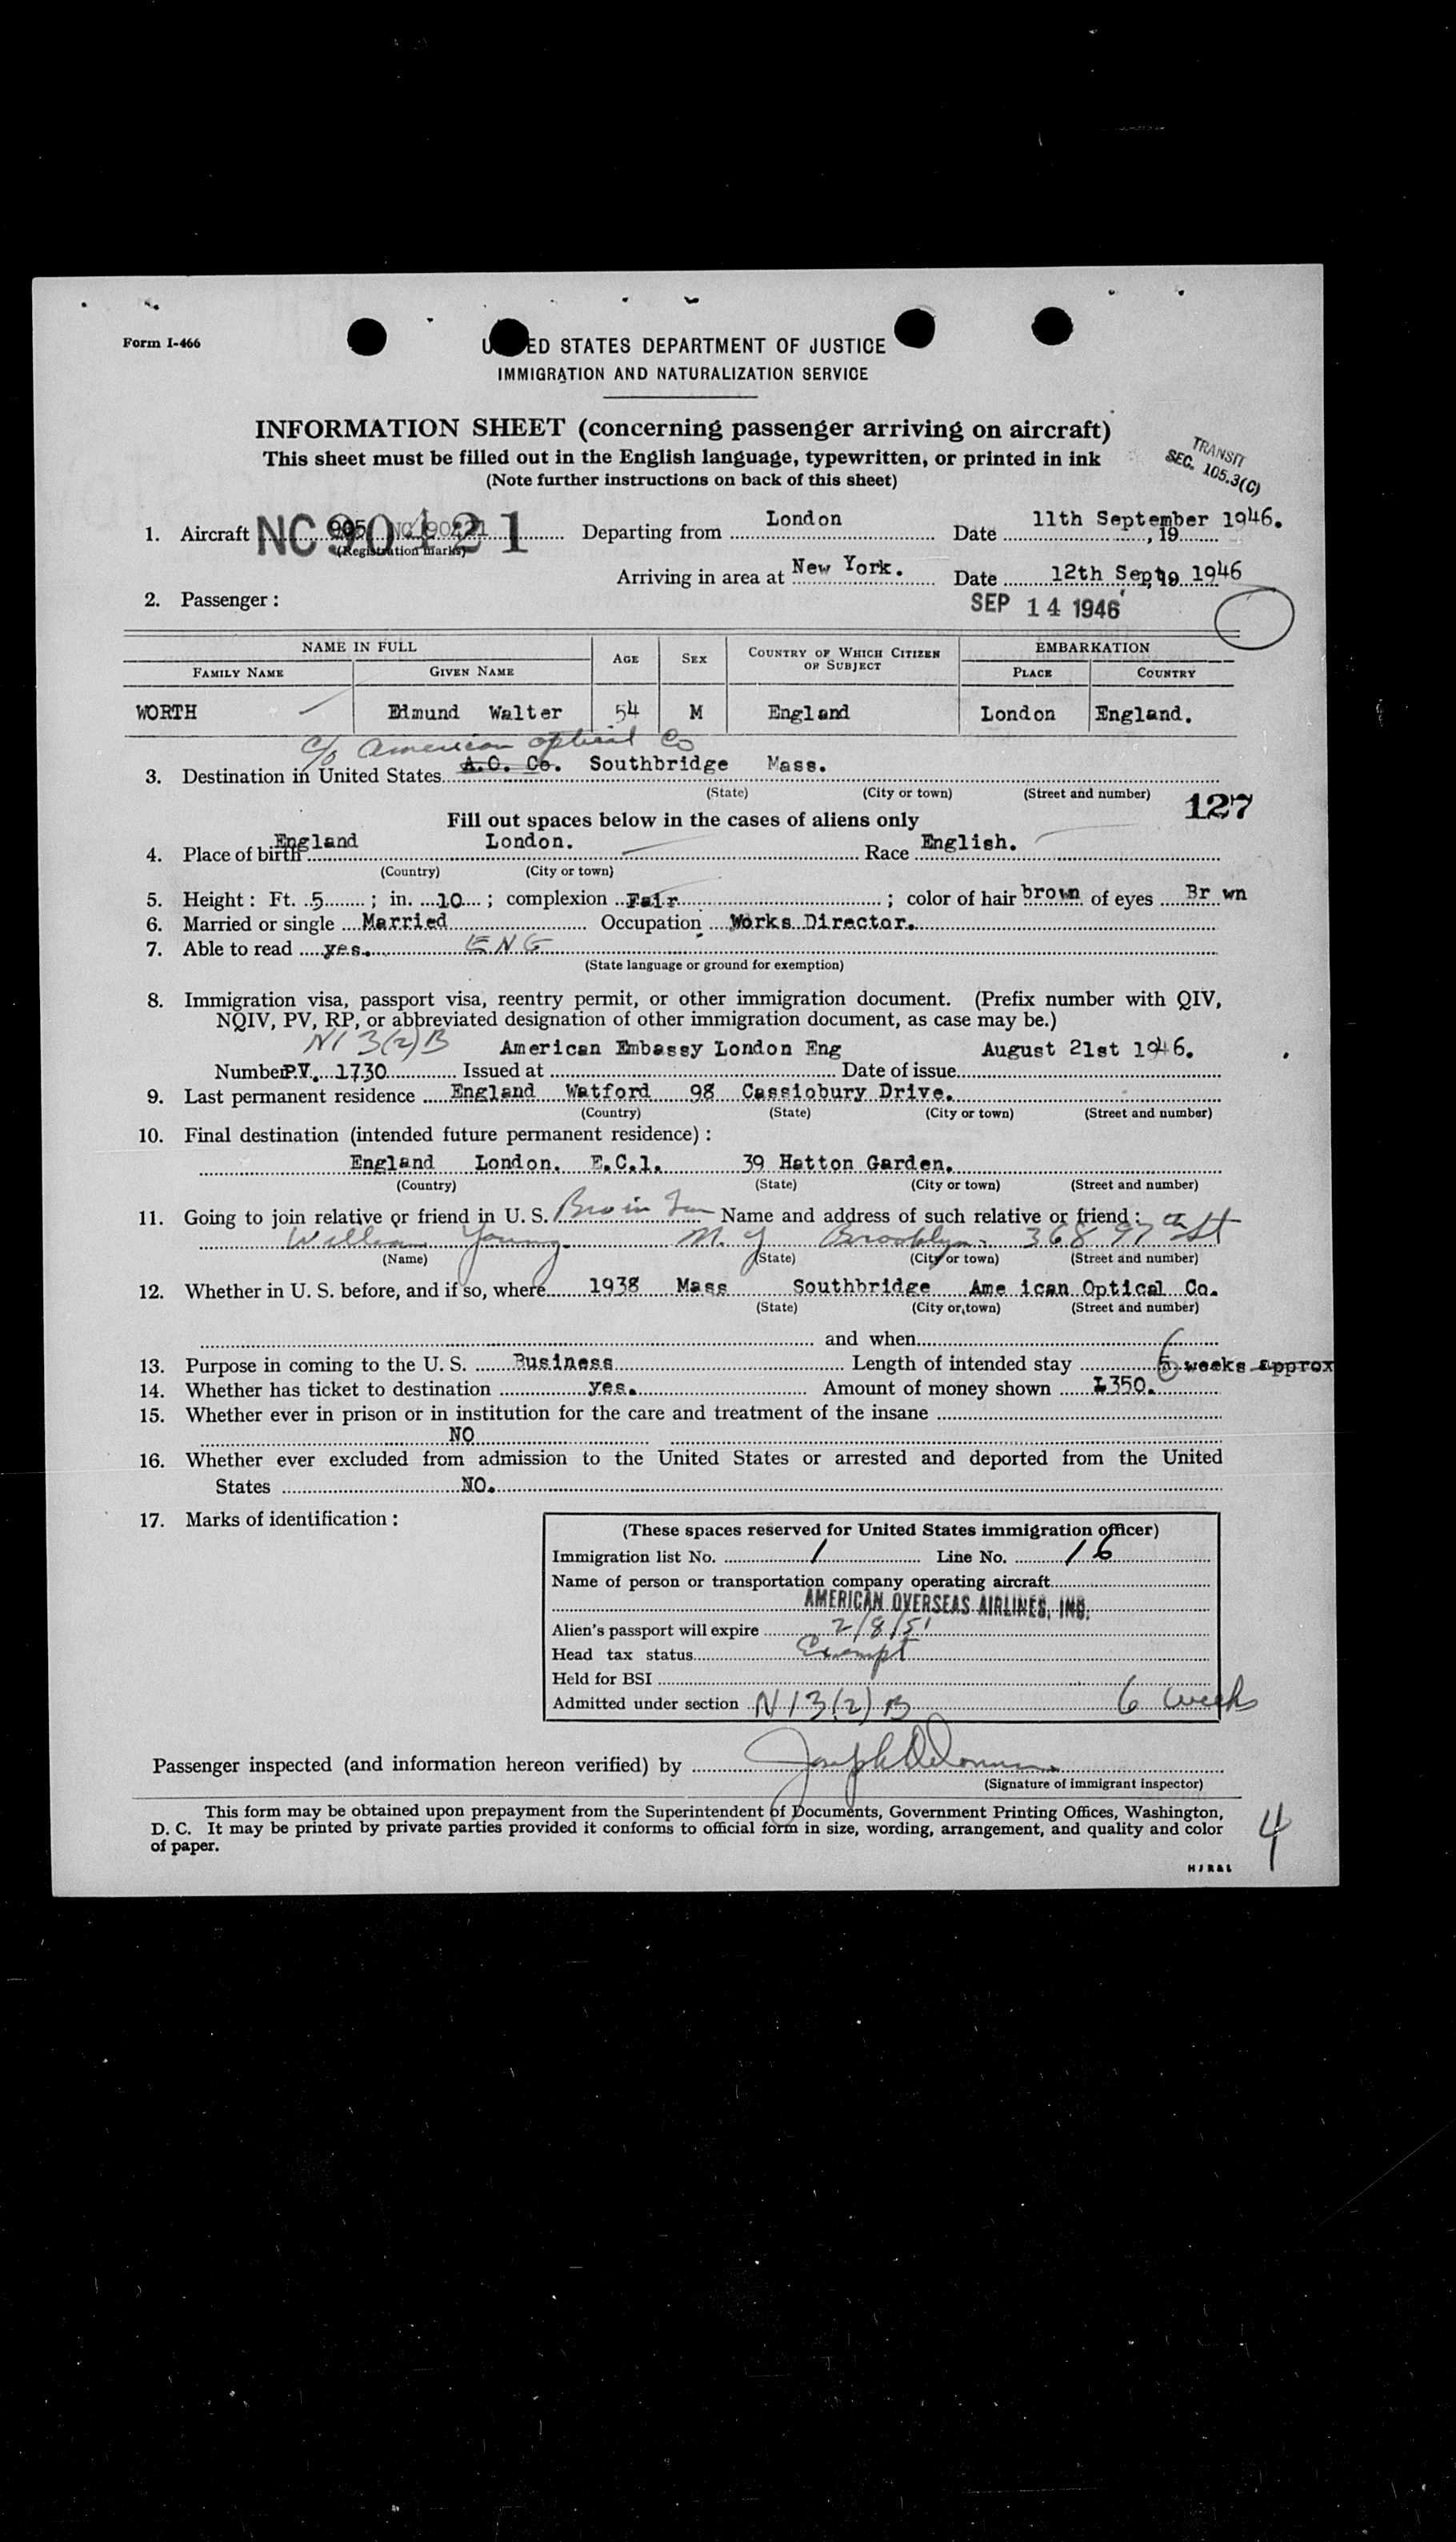 Form I-466
UNITED STATES DEPARTMENT OF JUSTICE
IMMIGRATION AND NATURALIZATION SERVICE
INFORMATION SHEET (concerning passenger arriving on aircraft)
This sheet must be filled out in the English language, typewritten, or printed in ink
(Note further instructions on back of this sheet)
TRANSIT
SEC. 105.3(C)
1. Aircraft NC90421 Departing from London Date 11th September 1946. , 19
(Registration marks)
Arriving in area at New York. Date 12th Sept, 19 1946
2. Passenger :
SEP 14 1946
NAME IN FULL AGE SEX COUNTRY OF WHICH CITIZEN OR SUBJECT EMBARKATION
FAMILY NAME GIVEN NAME PLACE COUNTRY
WORTH Edmund Walter 54 M England London England.
c/o American Optical Co
3. Destination in United States A.O. Co. Southbridge Mass.
(State) (City or town) (Street and number)
127
Fill out spaces below in the cases of aliens only
4. Place of birth England London. Race English.
(Country) (City or town)
5. Height : Ft. 5 ; in. 10 ; complexion Fair ; color of hair brown of eyes Br wn
6. Married or single Married Occupation Works Director.
7. Able to read yes. ENG
(State language or ground for exemption)
8. Immigration visa, passport visa, reentry permit, or other immigration document. (Prefix number with QIV,
NQIV, PV, RP, or abbreviated designation of other immigration document, as case may be.)
NI 3(2)B
Number P.V. 1730 Issued at American Embassy London Eng Date of issue August 21st 1946.
9. Last permanent residence England Watford 98 Cassiobury Drive.
(Country) (State) (City or town) (Street and number)
10. Final destination (intended future permanent residence) :
England London. E.C.1. 39 Hatton Garden.
(Country) (State) (City or town) (Street and number)
11. Going to join relative or friend in U. S. Bro in Law Name and address of such relative or friend :
William Young N.Y Brooklyn 368 97th St
(Name) (State) (City or town) (Street and number)
12. Whether in U. S. before, and if so, where 1938 Mass Southbridge Ame ican Optical Co.
(State) (City or town) (Street and number)
and when
13. Purpose in coming to the U. S. Business Length of intended stay 6 weeks approx
14. Whether has ticket to destination yes. Amount of money shown £350.
15. Whether ever in prison or in institution for the care and treatment of the insane
NO
16. Whether ever excluded from admission to the United States or arrested and deported from the United
States NO.
17. Marks of identification :
(These spaces reserved for United States immigration officer)
Immigration list No. 1 Line No. 16
Name of person or transportation company operating aircraft
AMERICAN OVERSEAS AIRLINES, INC.
Alien's passport will expire 2/8/51
Head tax status Exempt
Held for BSI
Admitted under section NI 3(2) B 6 weeks
Passenger inspected (and information hereon verified) by
(Signature of immigrant inspector)
This form may be obtained upon prepayment from the Superintendent of Documents, Government Printing Offices, Washington,
D. C. It may be printed by private parties provided it conforms to official form in size, wording, arrangement, and quality and color
of paper.
4